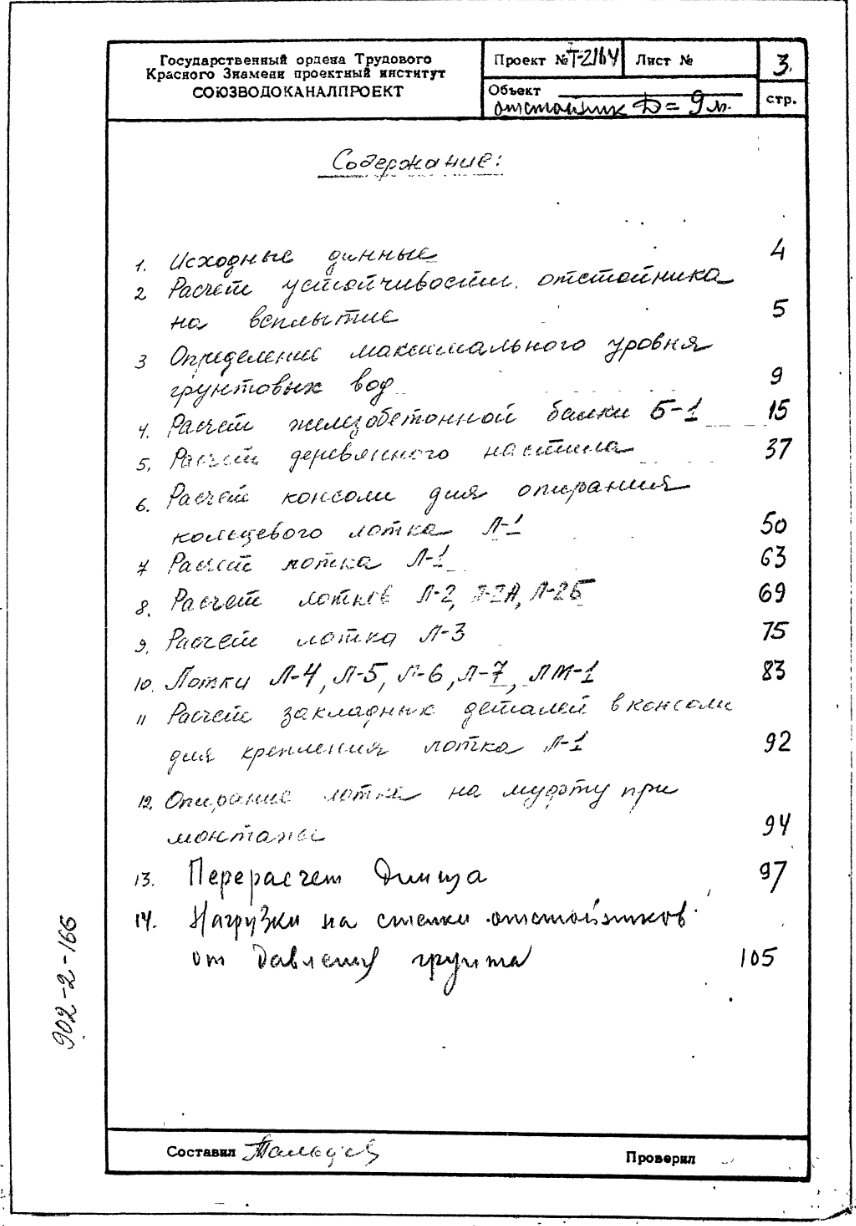 Государственный ордена Трудового
Красного Знамени проектный институт
СОЮЗВОДОКАНАЛПРОЕКТ
Проект № Т-2164 Лист №
3.
Объект
отстойник D = 9 м.
стр.
Содержание:
1. Исходные данные 4
2 Расчет устойчивости отстойника
на всплытие 5
3 Определение максимального уровня
грунтовых вод 9
4. Расчет железобетонной балки Б-1 15
5. Расчет деревянного настила 37
6. Расчет консоли для опирания
кольцевого лотка Л-1 50
7 Расчет лотка Л-1 63
8. Расчет лотков Л-2, Л-2А, Л-2Б 69
9. Расчет лотка Л-3 75
10. Лотки Л-4, Л-5, Л-6, Л-7, ЛМ-1 83
11 Расчет закладных деталей в консоли
для крепления лотка Л-1 92
12. Опирание лотка на муфту при
монтаже 94
13. Перерасчет днища 97
14. Нагрузки на стенки отстойников
от давления грунта 105
902-2-166
Составил
Проверил